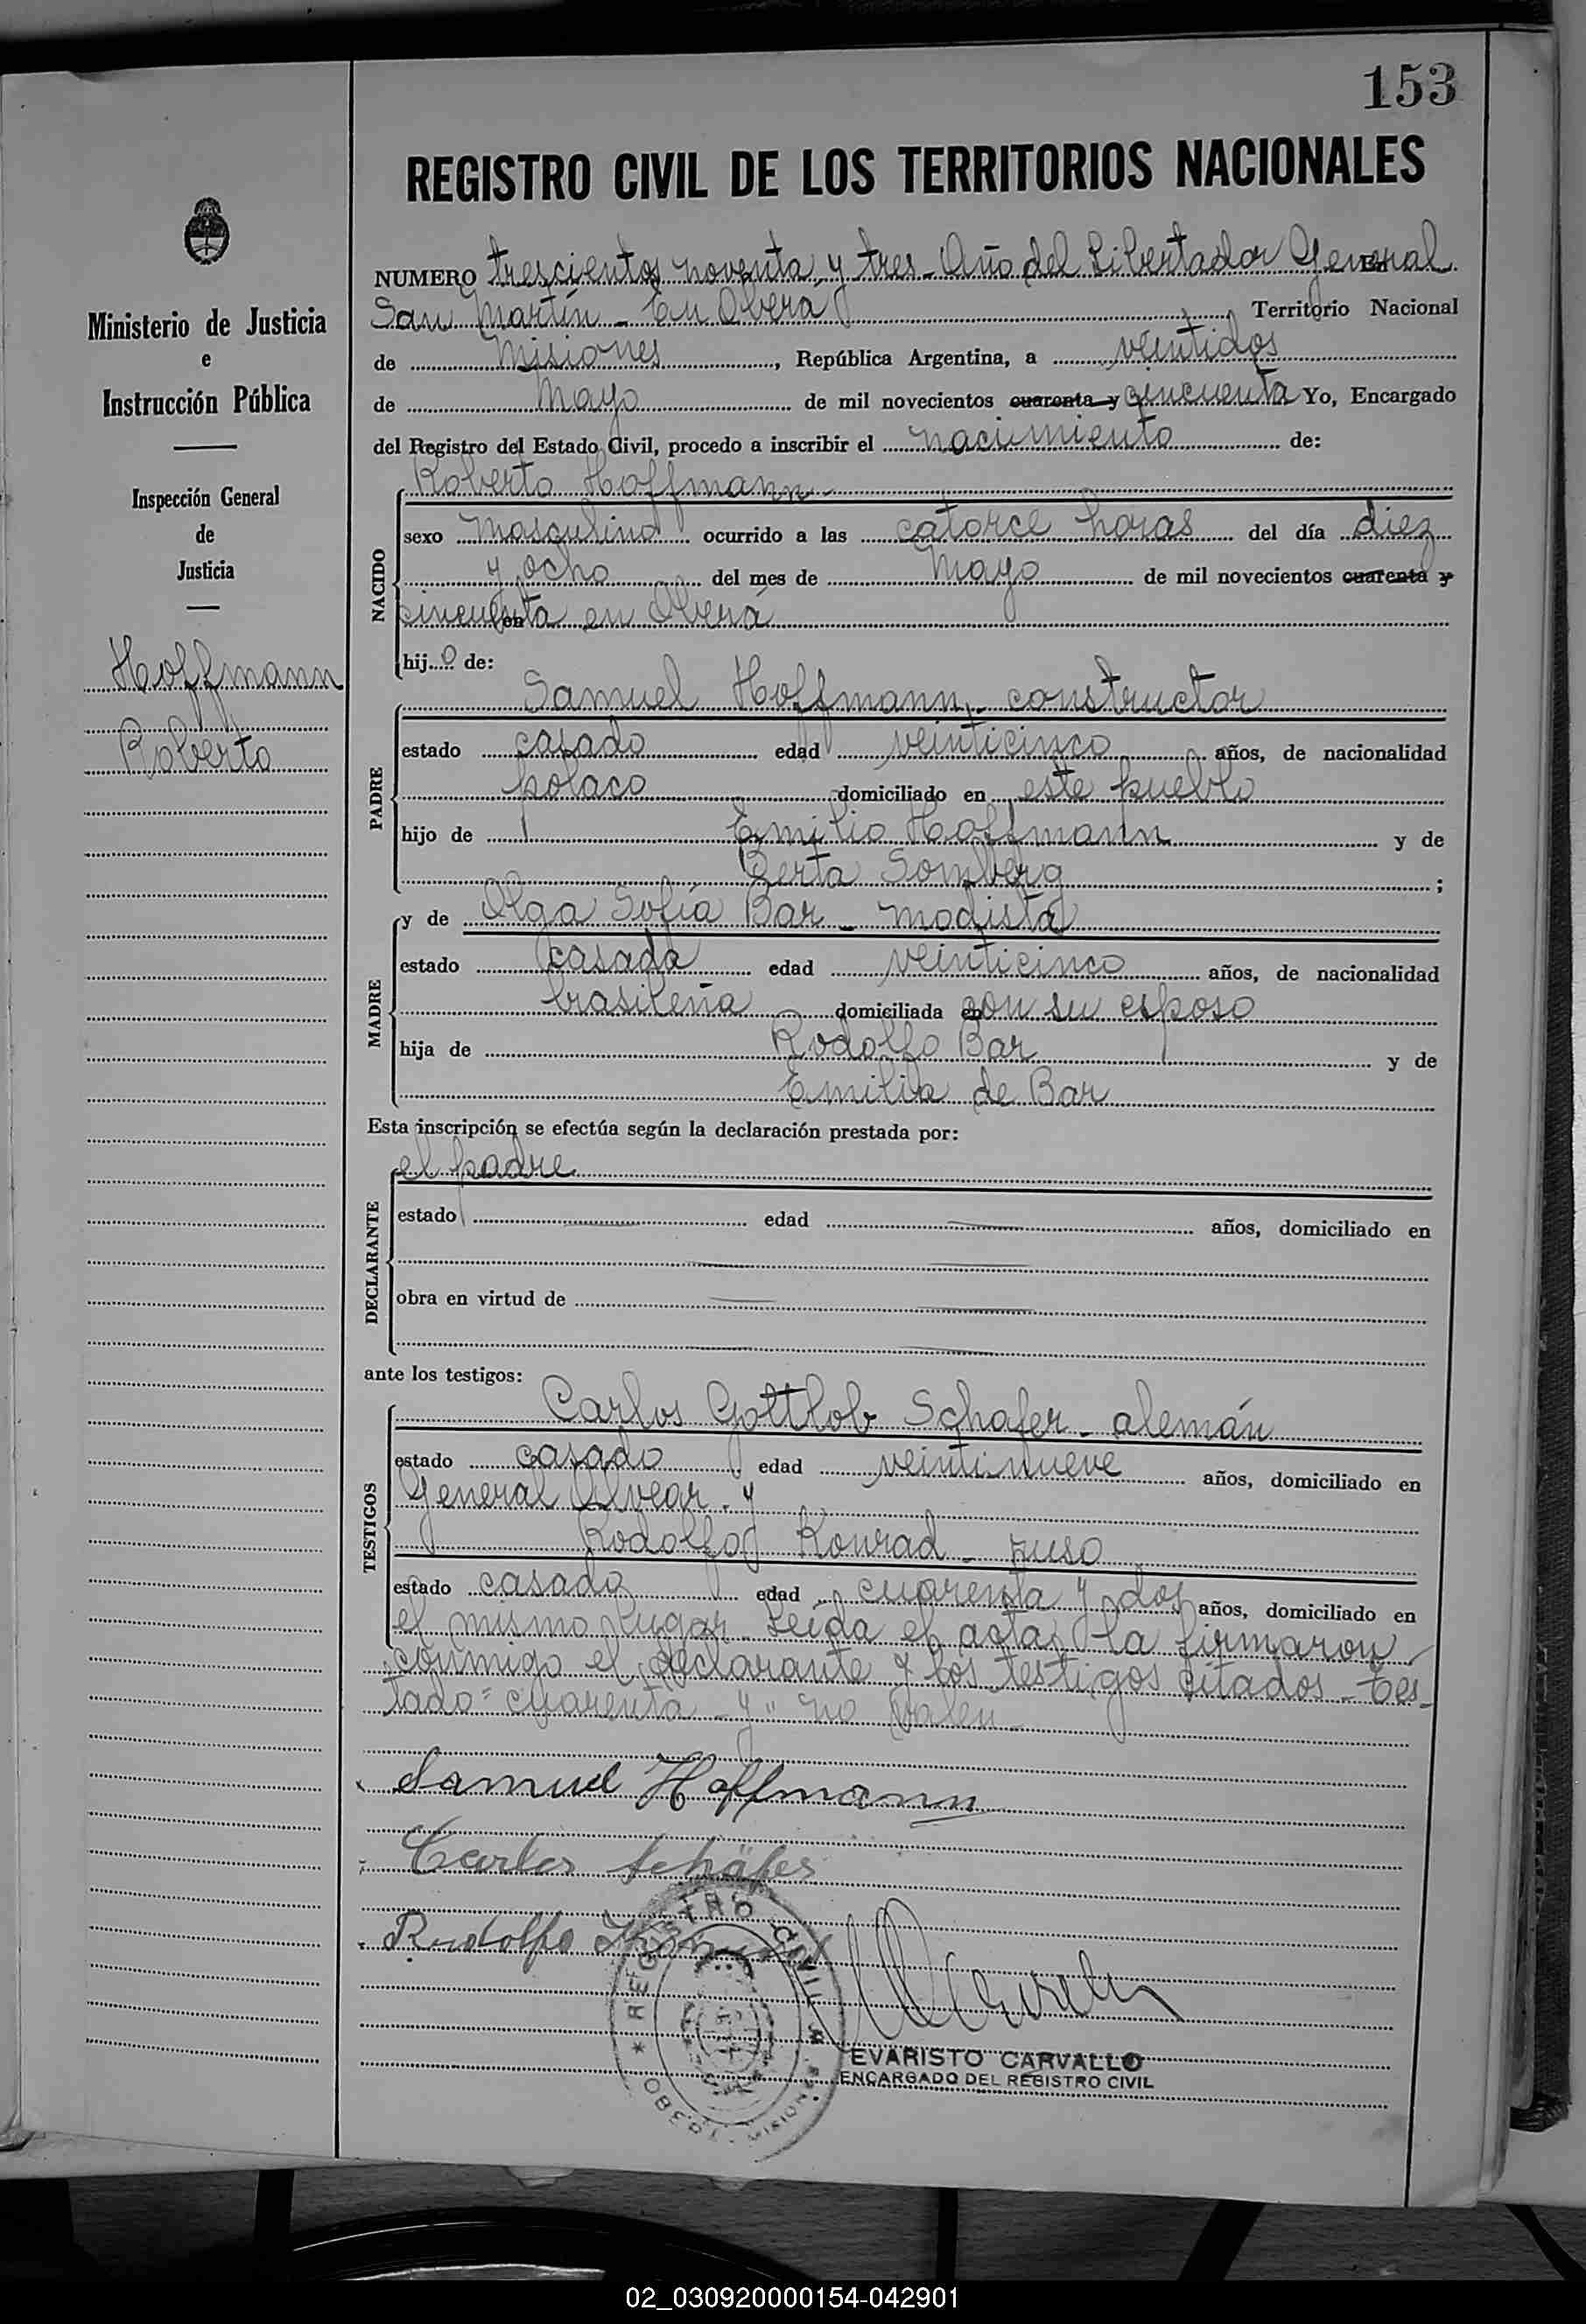 153
REGISTRO CIVIL DE LOS TERRITORIOS NACIONALES
Ministerio de Justicia
e
Instrucción Pública
Inspección General
de
Justicia
Hoffmann
Roberto
NUMERO trescientos noventa y tres - Año del Libertador General
San Martín - En Oberá Territorio Nacional
de Misiones, República Argentina, a veintidos
de Mayo de mil novecientos cuarenta y cincuenta Yo, Encargado
del Registro del Estado Civil, procedo a inscribir el nacimiento de:
Roberto Hoffmann
NACIDO
sexo masculino ocurrido a las catorce horas del día diez
y ocho del mes de Mayo de mil novecientos cuarenta y
cincuenta en Oberá
hijo de:
Samuel Hoffmann - constructor
PADRE
estado casado edad veinticinco años, de nacionalidad
polaco domiciliado en este pueblo
hijo de Emilio Hoffmann y de
Berta Somberg ;
MADRE
y de Olga Sofía Bar - modista
estado casada edad veinticinco años, de nacionalidad
brasileña domiciliada con su esposo
hija de Rodolfo Bar y de
Emilia de Bar
Esta inscripción se efectúa según la declaración prestada por:
el padre
DECLARANTE
estado edad años, domiciliado en
obra en virtud de
ante los testigos:
Carlos Gottlob Schafer - alemán
TESTIGOS
estado casado edad veintinueve años, domiciliado en
General Alvear - y
Rodolfo Konrad - ruso
estado casado edad cuarenta y dos años, domiciliado en
el mismo lugar - Leida el acta, la firmaron
conmigo el declarante y los testigos citados - Tes-
tado "cuarenta - y" no valen -
Samuel Hoffmann
Carlos Schäfer
Rudolfo Konrad
REGISTRO CIVIL
OBERA - MISIONES
EVARISTO CARVALLO
ENCARGADO DEL REGISTRO CIVIL
02_030920000154-042901